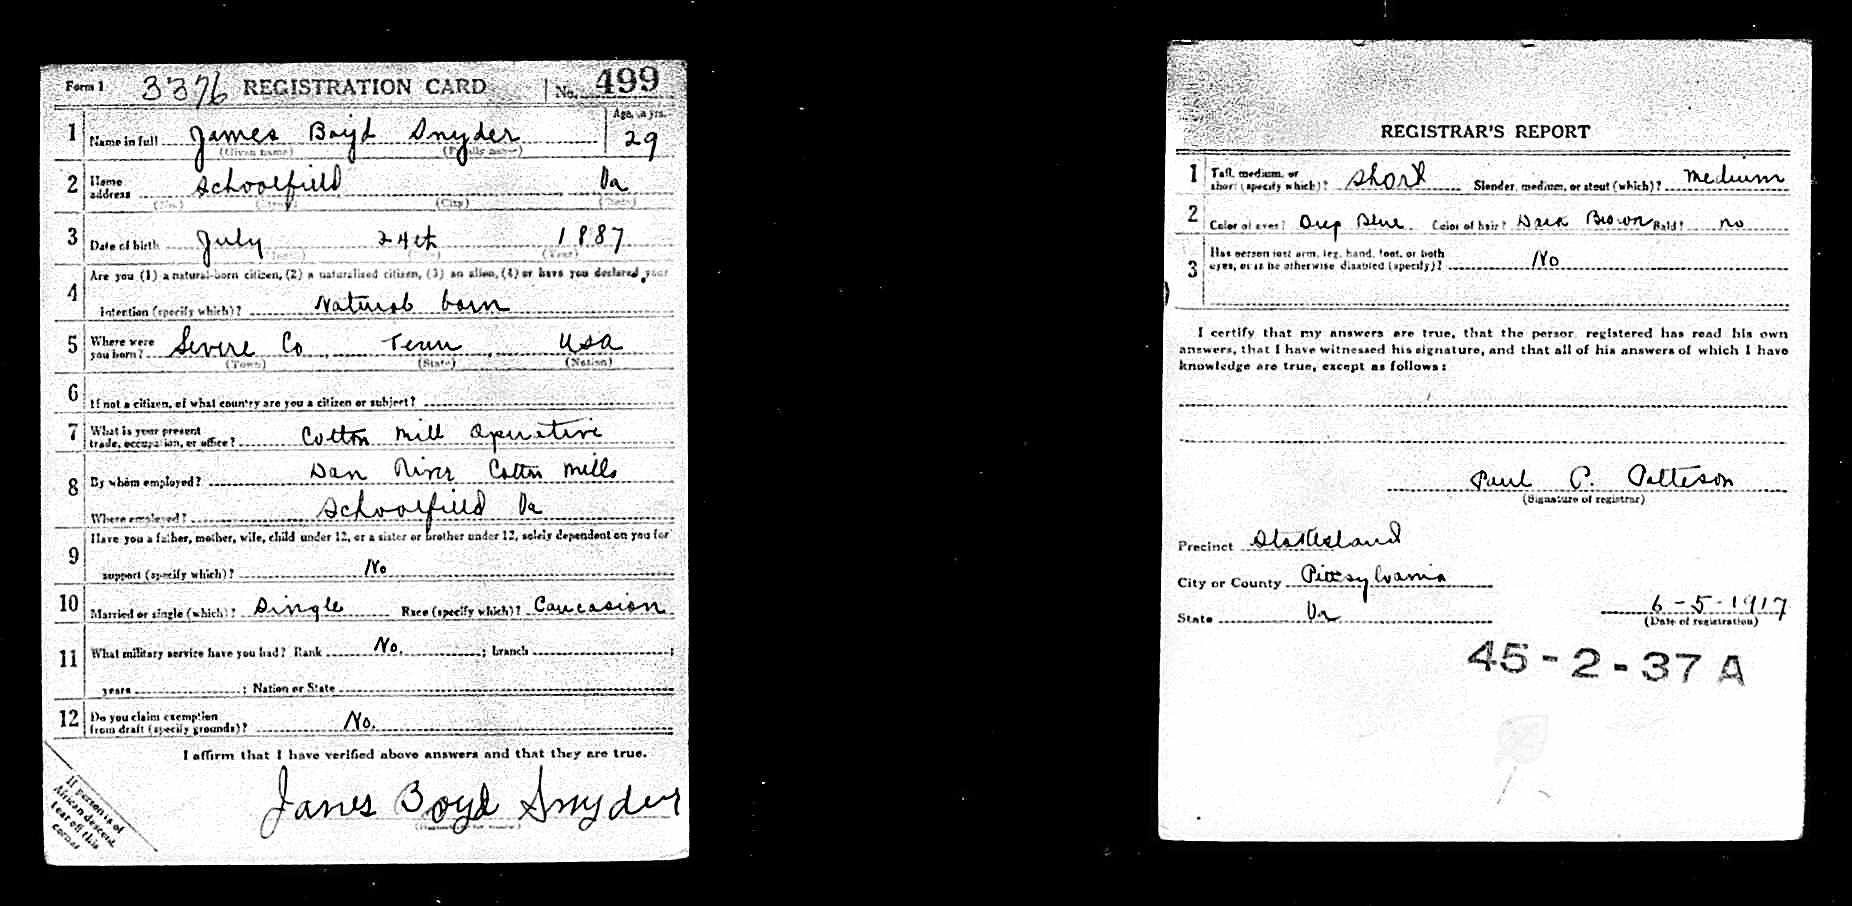 Form 1 3376 REGISTRATION CARD No. 499
1 Name in full James Boyd Snyder Age, in yrs. 29
(Given name) (Family name)
2 Home address Schoolfield Va
(No.) (Street) (City) (State)
3 Date of birth July 24th 1887
(Month) (Day) (Year)
4 Are you (1) a natural-born citizen, (2) a naturalized citizen, (3) an alien, (4) or have you declared your
intention (specify which)? Natural born
5 Where were you born? Sevire Co Tenn USA
(Town) (State) (Nation)
6 If not a citizen, of what country are you a citizen or subject?
7 What is your present trade, occupation, or office? Cotton Mill Operative
8 By whom employed? Dan River Cotton Mills
Where employed? Schoolfield Va
9 Have you a father, mother, wife, child under 12, or a sister or brother under 12, solely dependent on you for
support (specify which)? No
10 Married or single (which)? Single Race (specify which)? Caucasion
11 What military service have you had? Rank No. ; branch ;
years ; Nation or State
12 Do you claim exemption from draft (specify grounds)? No.
I affirm that I have verified above answers and that they are true.
James Boyd Snyder
If person is of
African descent,
tear off this
corner
REGISTRAR'S REPORT
1 Tall, medium, or short (specify which)? Short Slender, medium, or stout (which)? Medium
2 Color of eyes? Deep Blue Color of hair? Dark Brown Bald? no
3 Has person lost arm, leg, hand, foot, or both eyes, or is he otherwise disabled (specify)? No
I certify that my answers are true, that the person registered has read his own
answers, that I have witnessed his signature, and that all of his answers of which I have
knowledge are true, except as follows:
Paul C. Patteson
(Signature of registrar)
Precinct
City or County Pittsylvania
State Va 6-5-1917
(Date of registration)
45-2-37 A